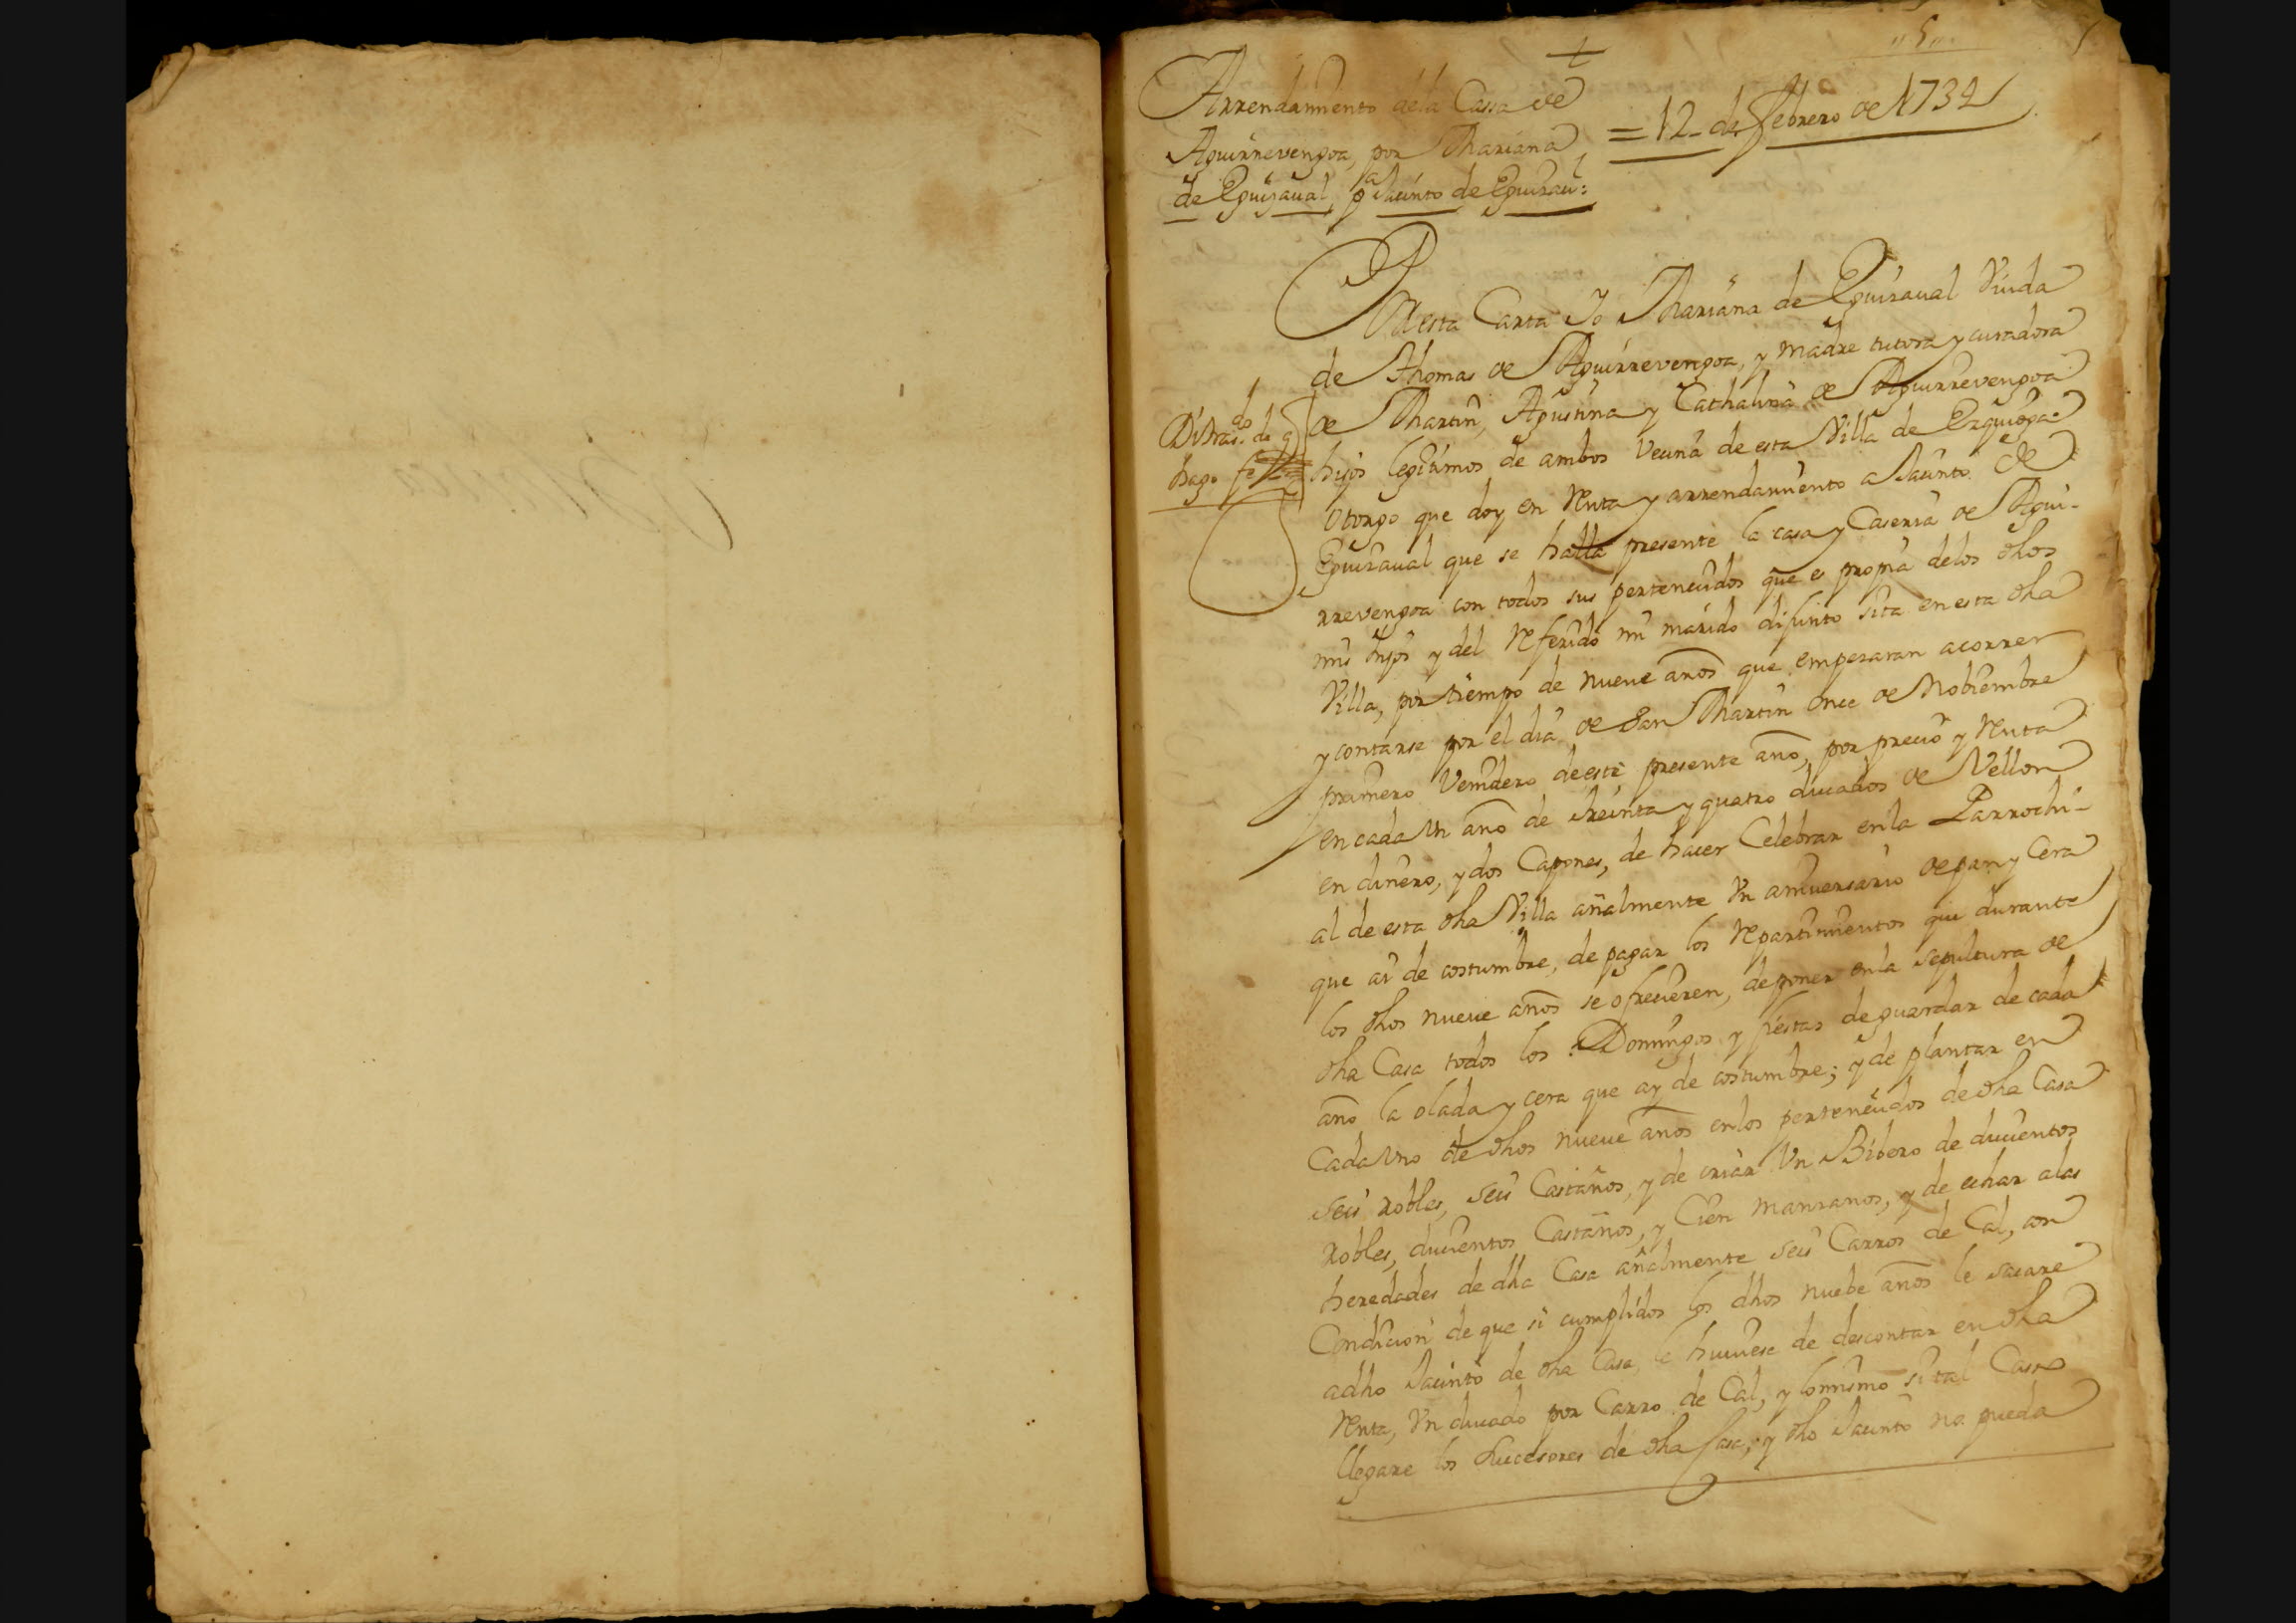 +
"5"
Arrendamiento de la Cassa de
Aguirrevengoa, por Mariana
de Eguiraual, pa Jacinto de Eguirau:
= 12- de febrero de 1732
Por esta Carta Yo Mariana de Eguiraual Viuda
de Thomas de Aguirrevengoa, y madre tutora y curadora
de Martin, Agustina y Cathalina de Aguirrevengoa
hijos legitimos de ambos Vecina de esta Villa de Ezquioga
otorgo que doy en Renta y arrendamiento a Jacinto de
Eguiraual que se halla presente la casa y Caseria de Agui-
rrevengoa con todos sus pertenecidos que es propia delos dhos
mis hijos y del Referido mi marido difunto sita en esta dha
Villa, por tiempo de nueue años que empezaran acorrer
y contarse por el dia de San Martin once de Nobiembre
primero Venidero deeste presente año, por precio y Renta
en cada Vn año de treinta y quatro ducados de Vellon
en dinero, y dos Capones, de hacer Celebrar enla Parrochi-
al de esta dha Villa añalmente Vn aniuersario de pan y Cera
que ai de costumbre, de pagar los Repartimientos que durante
los dhos nueue años se ofrecieren, de poner enla sepultura de
dha Casa todos los Domingos y fiestas de guardar de cada
año la olada y cera que ay de costumbre; y de plantar en
Cada Vno de dhos nueue años enlos pertenecidos de dha Casa
seis robles, seis Castaños, y de criar Vn Bibero de ducientos
Robles, ducientos Castaños, y Cien manzanos, y de echar alas
heredades de dha Casa añalmente seis Carros de Cal, con
Condicion de que si cumplidos los dhos nuebe años le sacare
adho Jacinto de dha Casa, le huuiese de descontar en dha
Renta, Vn ducado por Carro de Cal, y lo mismo si tal Caso
llegare los Sucesores de dha Casa; y dho Jacinto no pueda
do
Di tras. de q
hago fe